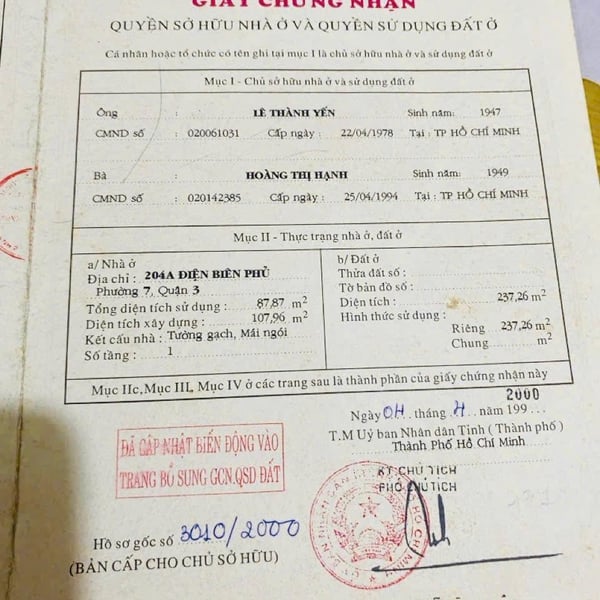 GIẤY CHỨNG NHẬN
QUYỀN SỞ HỮU NHÀ Ở VÀ QUYỀN SỬ DỤNG ĐẤT Ở
Cá nhân hoặc tổ chức có tên ghi tại mục I là chủ sở hữu nhà ở và sử dụng đất ở
Mục I - Chủ sở hữu nhà ở và sử dụng đất ở
Ông : LÊ THÀNH YẾN Sinh năm: 1947
CMND số : 020061031 Cấp ngày : 22/04/1978 Tại : TP HỒ CHÍ MINH
Bà : HOÀNG THỊ HẠNH Sinh năm: 1949
CMND số : 020142385 Cấp ngày : 25/04/1994 Tại : TP HỒ CHÍ MINH
Mục II - Thực trạng nhà ở, đất ở
a/ Nhà ở
Địa chỉ : 204A ĐIỆN BIÊN PHỦ
Phường 7, Quận 3
Tổng diện tích sử dụng : 87,87 m2
Diện tích xây dựng : 107,96 m2
Kết cấu nhà : Tường gạch, Mái ngói
Số tầng : 1
b/ Đất ở
Thửa đất số :
Tờ bản đồ số :
Diện tích : 237,26 m2
Hình thức sử dụng :
Riêng 237,26 m2
Chung m2
Mục IIc, Mục III, Mục IV ở các trang sau là thành phần của giấy chứng nhận này
2000
Ngày 04 tháng 4 năm 199...
T.M Uỷ ban Nhân dân Tỉnh (Thành phố)
Thành Phố Hồ Chí Minh
KT CHỦ TỊCH
PHÓ CHỦ TỊCH
ĐÃ CẬP NHẬT BIẾN ĐỘNG VÀO
TRANG BỔ SUNG GCN.QSD ĐẤT
Hồ sơ gốc số 3010/2000
(BẢN CẤP CHO CHỦ SỞ HỮU)